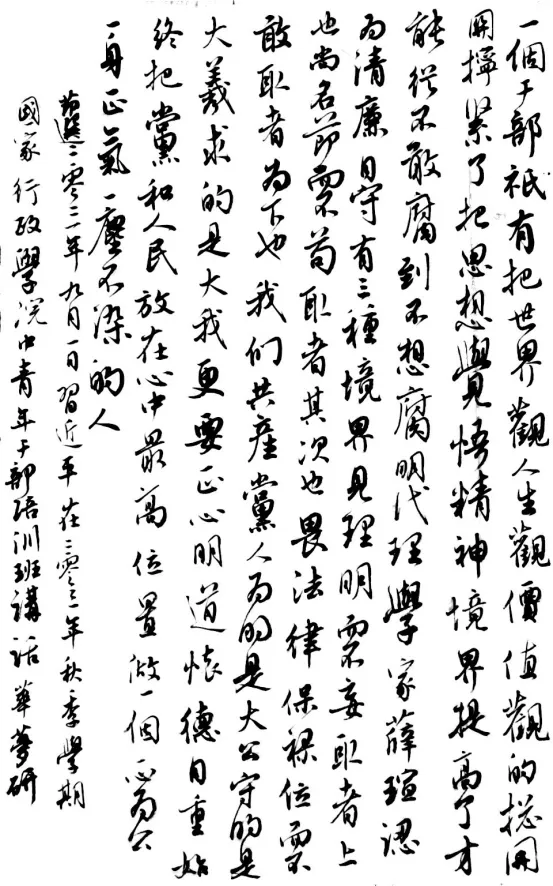 一個干部祇有把世界觀人生觀價值觀的總開
關擰緊了把思想覺悟精神境界提高了才
能從不敢腐到不想腐明代理學家薛瑄認
為清廉自守有三種境界見理明而不妄取者上
也尚名節而不苟取者其次也畏法律保祿位而不
敢取者為下也我们共產黨人為的是大公守的是
大義求的是大我更要正心明道怀德自重始
終把黨和人民放在心中最高位置做一個一心為公
一身正氣一塵不染的人
節選二零二一年九月一日習近平在二零二一年秋季學期
國家行政學院中青年干部培训班講話 華夢研